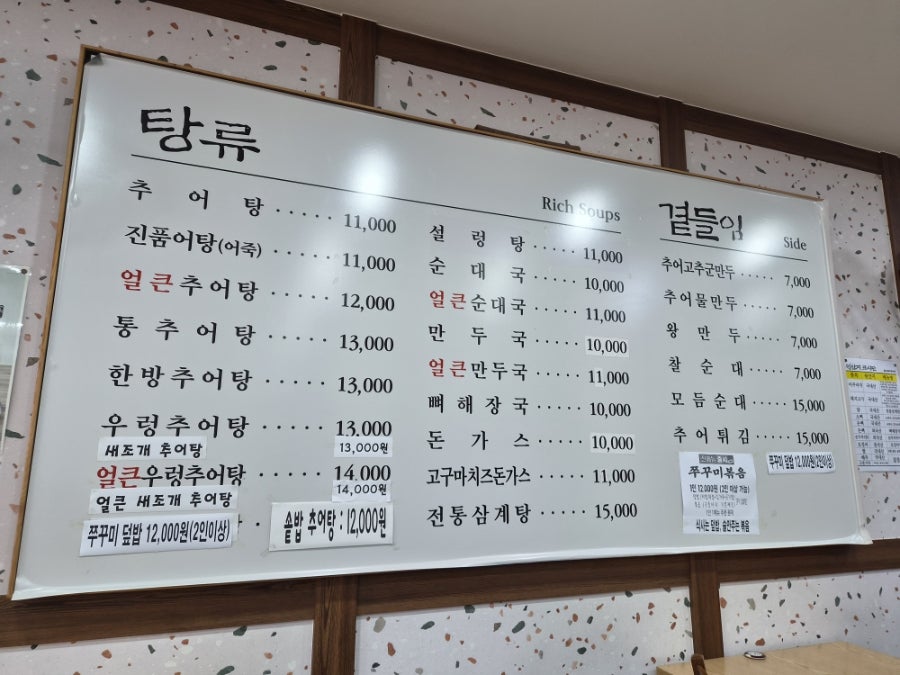 탕류
Rich Soups
추어탕 ····· 11,000
진품어탕(어죽) ····· 11,000
얼큰추어탕 ····· 12,000
통추어탕 ····· 13,000
한방추어탕 ····· 13,000
우렁추어탕 ····· 13,000
새조개 추어탕 13,000원
얼큰우렁추어탕 ····· 14,000
얼큰 새조개 추어탕 14,000원
쭈꾸미 덮밥 12,000원(2인이상)
솥밥 추어탕 : 12,000원
설렁탕 ····· 11,000
순대국 ····· 10,000
얼큰순대국 ····· 11,000
만두국 ····· 10,000
얼큰만두국 ····· 11,000
뼈해장국 ····· 10,000
돈가스 ····· 10,000
고구마치즈돈가스 ····· 11,000
전통삼계탕 ····· 15,000
곁들임 Side
추어고추군만두 ····· 7,000
추어물만두 ····· 7,000
왕만두 ····· 7,000
찰순대 ····· 7,000
모듬순대 ····· 15,000
추어튀김 ····· 15,000
쭈꾸미 덮밥 12,000원(2인이상)
쭈꾸미볶음
1인 12,000원 (2인 이상 가능)
식사는 덮밥, 술안주는 볶음